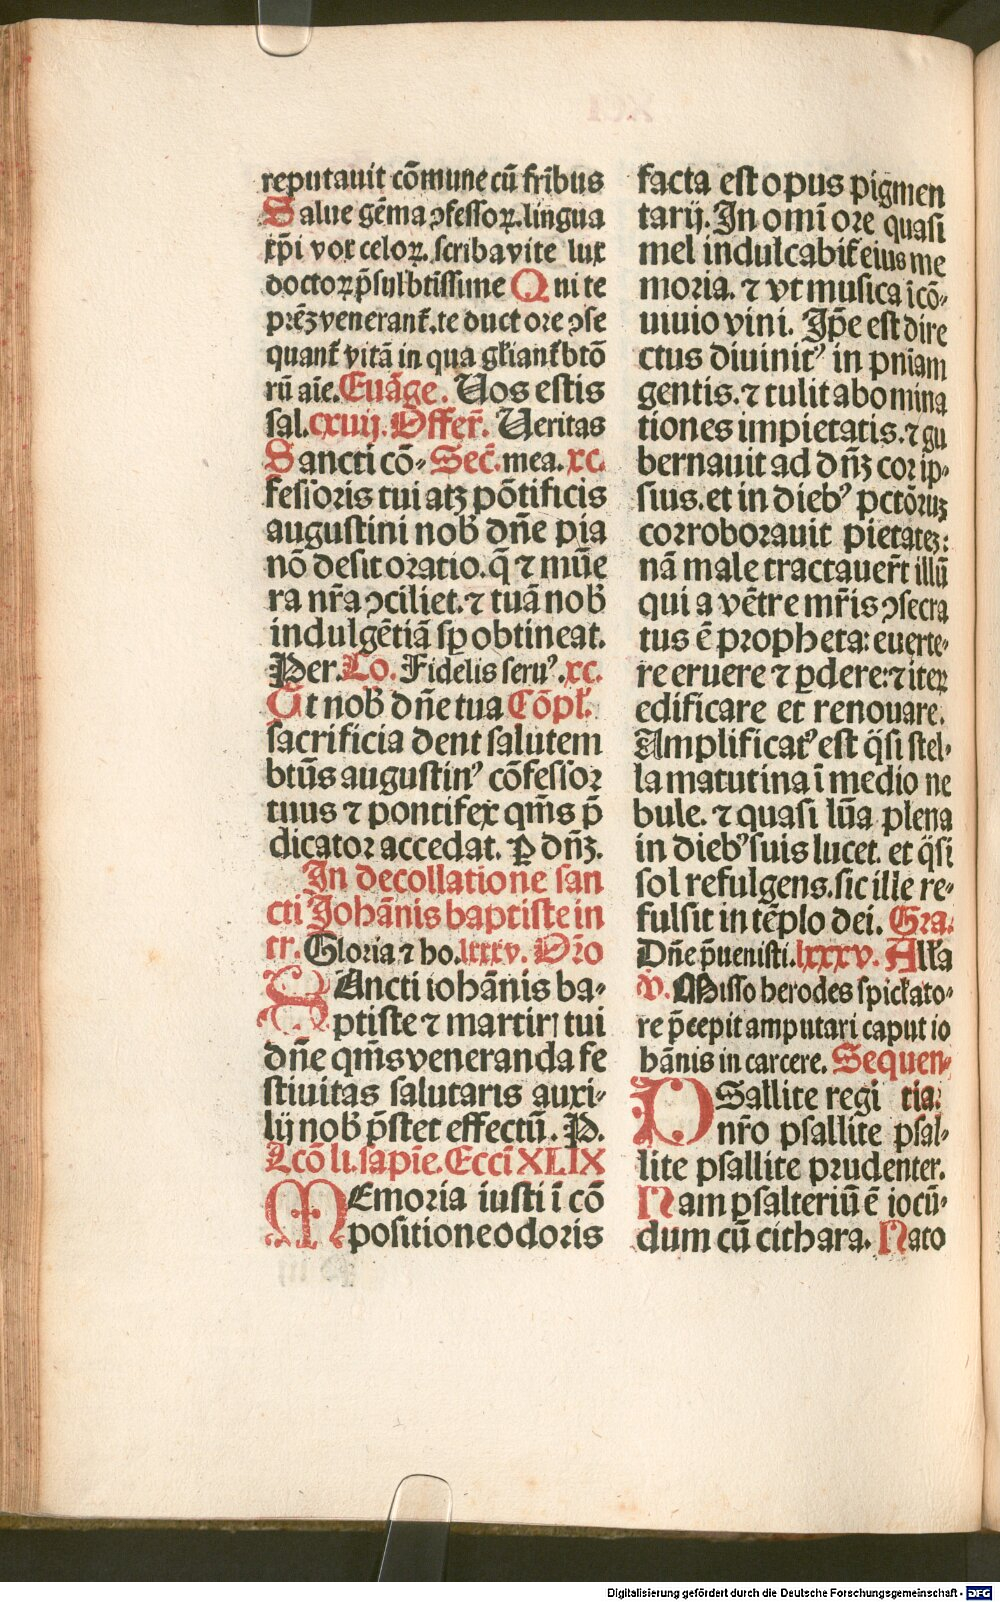 reputauit cōmune cū frībus
Salue gēma ꝯfessoꝝ. lingua
xp̄i vox celoꝝ. scriba vite lux
doctoꝝ p̄sul btīssime Qui te
prēꝫ venerant̄. te duct ore ꝯse
quant̄ vitā in qua gl̄iant̄ btō
rū aīe. Euāge. Uos estis
sal. cxviij. Offer̄. Ueritas
Sancti cō- Sec̄. mea. xc.
fessoris tui atꝫ pōtificis
augustini nob̄ dn̄e pia
nō desit oratio. q̄ ⁊ mūe
ra nr̄a ꝯciliet. ⁊ tuā nob̄
indulgētiā sꝑ obtineat.
Per. Co. Fidelis seruꝰ. xc.
Ut nob̄ dn̄e tua Cōpl̄.
sacrificia dent salutem
btūs augustinꝰ cōfessor
tuus ⁊ pontifex qm̄s p̄
dicator accedat. P dn̄ꝫ.
In decollatione san
cti Johānis baptiste in
tr. Gloria ⁊ ho. lxxxv. Oro
SAncti iohānis ba-
ptiste ⁊ martirꝭ tui
dn̄e qm̄s veneranda fe
stiuitas salutaris auxi-
lij nob̄ p̄stet effectū. P.
Lcō li. sapīe. Ecci XLIX
MEmoria iusti ī cō
positione odoris
facta est opus pigmen
tarij. In omī ore quasi
mel indulcabit̄ eius me
moria. ⁊ vt musica ī cō-
uiuio vini. Ip̄e est dire
ctus diuinitꝰ in pn̄iam
gentis. ⁊ tulit abomina
tiones impietatis. ⁊ gu
bernauit ad dn̄ꝫ cor ip-
sius. et in diebꝰ pctōruꝫ
corroborauit pietateꝫ:
nā male tractauer̄t illū
qui a vētre mr̄is ꝯsecra
tus ē propheta: euerte-
re eruere ⁊ ꝑdere: ⁊ iteꝝ
edificare et renouare.
Amplificatꝰ est q̄si stel-
la matutina ī medio ne
bule. ⁊ quasi lūa plena
in diebꝰ suis lucet. et q̄si
sol refulgens. sic ille re-
fulsit in tēplo dei. Gra.
Dn̄e p̄uenisti. lxxxv. Alla
V. Misso herodes spicl̄ato-
re p̄cepit amputari caput io
hānis in carcere. Sequen-
PSallite regi tia.
nr̄o psallite psal-
lite psallite prudenter.
Nam psalteriū ē iocū-
dum cū cithara. Nato
Digitalisierung gefördert durch die Deutsche Forschungsgemeinschaft - DFG